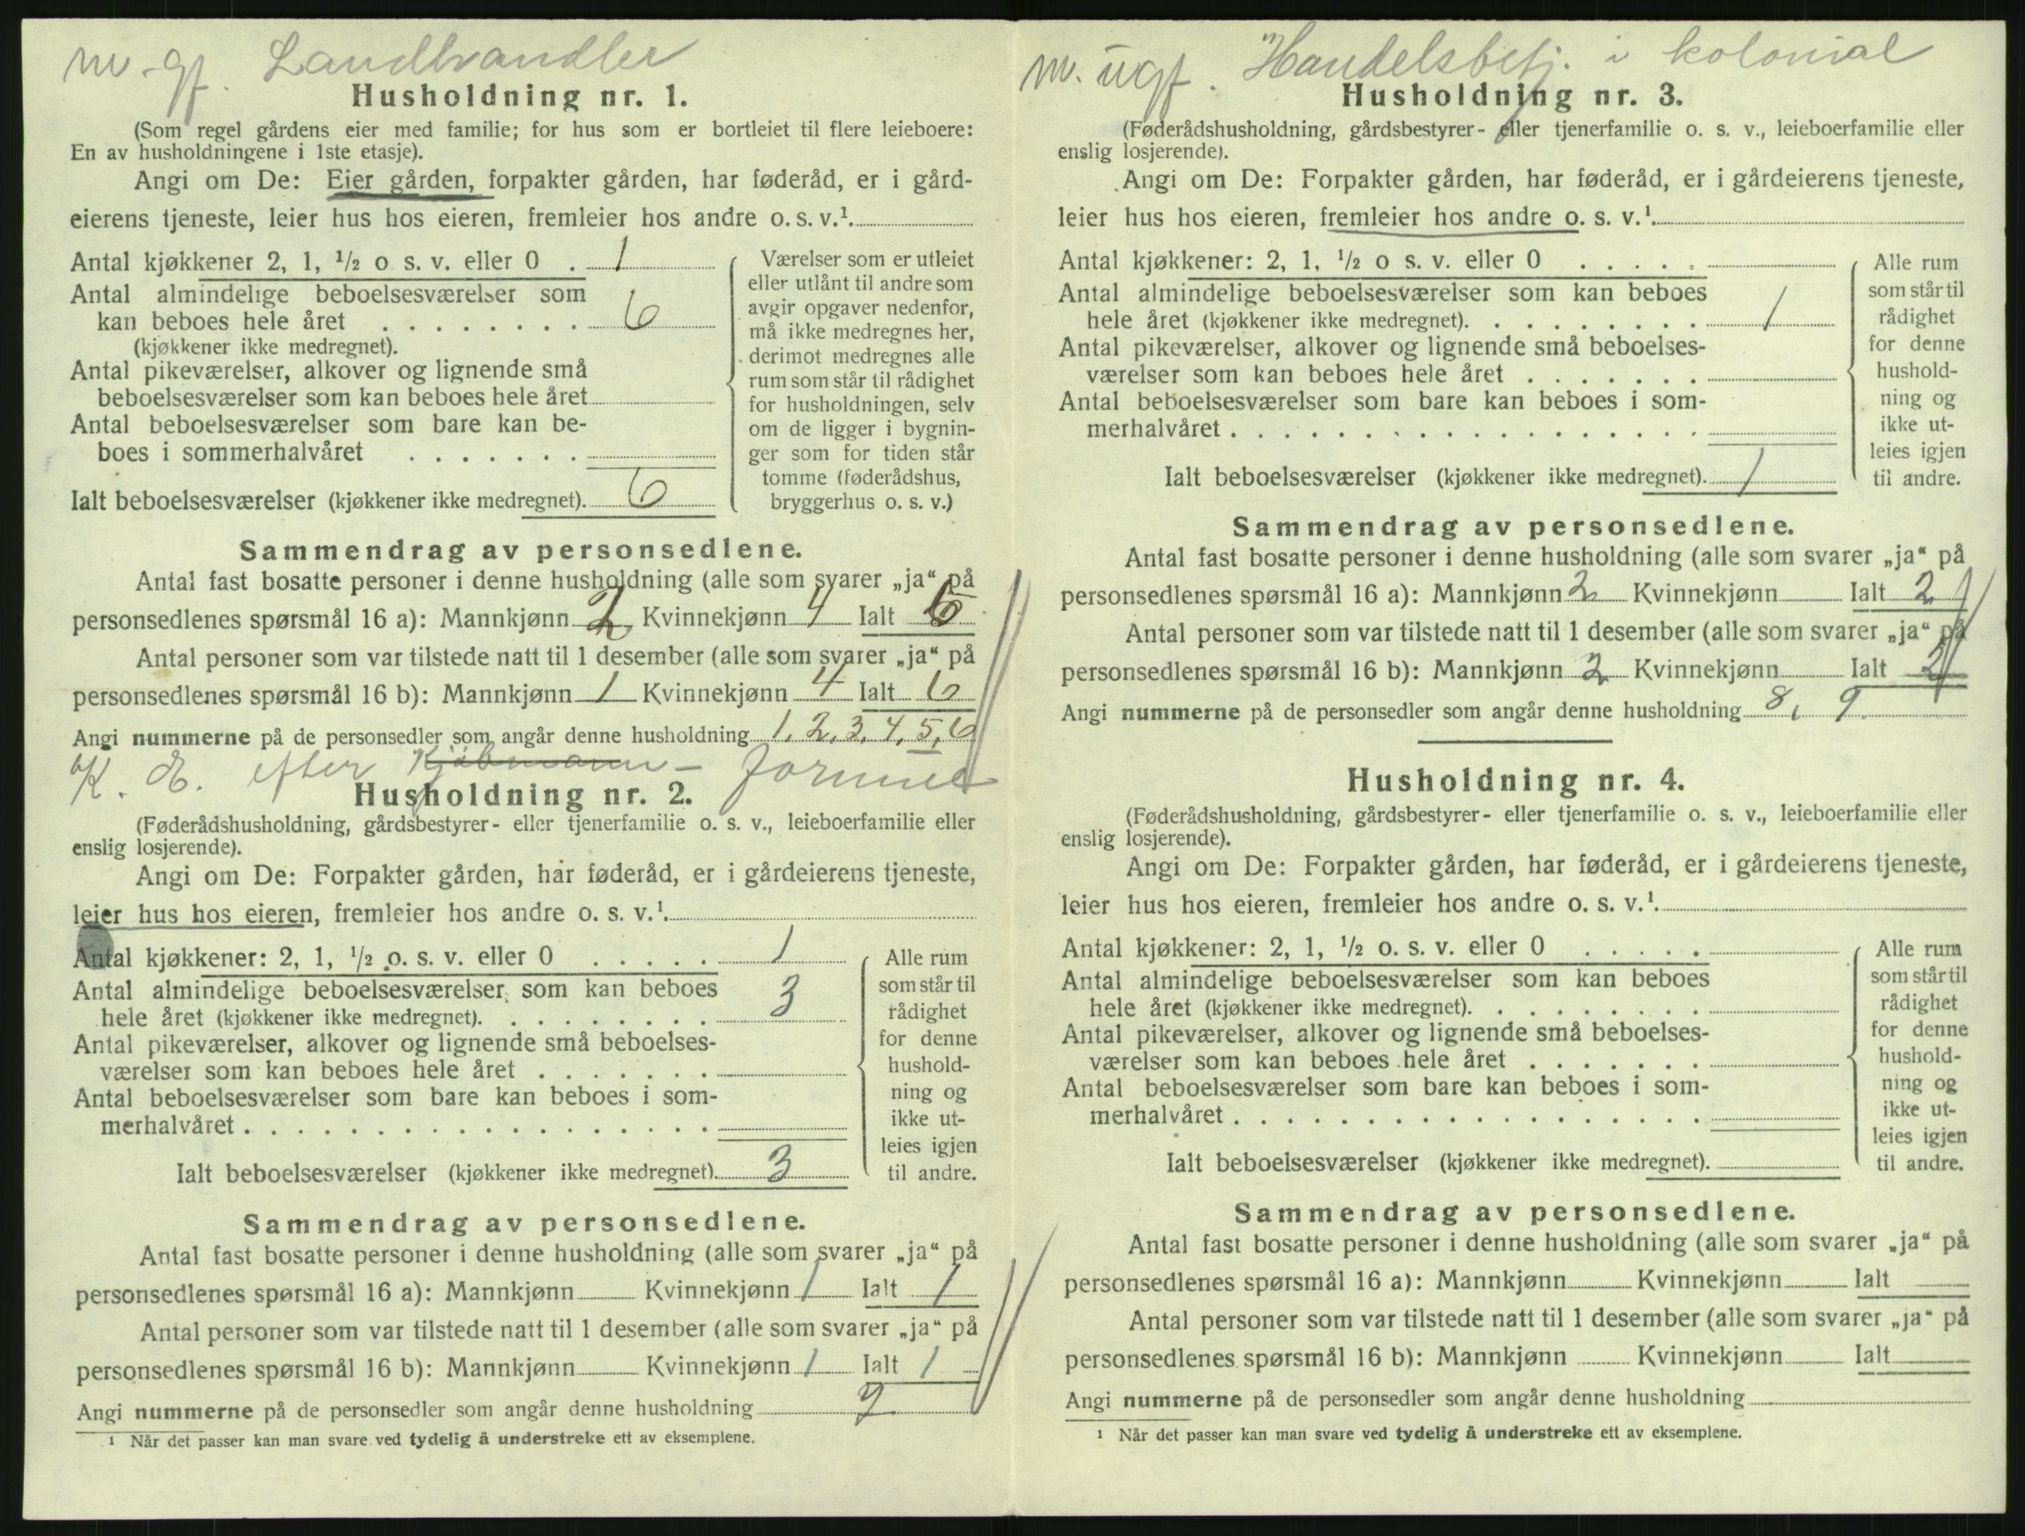 m. gf. Landhandler
Husholdning nr. 1.
(Som regel gårdens eier med familie; for hus som er bortleiet til flere leieboere:
En av husholdningene i 1ste etasje).
Angi om De: Eier gården, forpakter gården, har føderåd, er i gård-
eierens tjeneste, leier hus hos eieren, fremleier hos andre o. s. v.¹.
Antal kjøkkener 2, 1, ½ o s. v. eller 0 . 1
Antal almindelige beboelsesværelser som
kan beboes hele året . . . . . . . . 6
(kjøkkener ikke medregnet).
Antal pikeværelser, alkover og lignende små
beboelsesværelser som kan beboes hele året
Antal beboelsesværelser som bare kan be-
boes i sommerhalvåret . . . . . . .
Ialt beboelsesværelser (kjøkkener ikke medregnet). 6
Værelser som er utleiet
eller utlånt til andre som
avgir opgaver nedenfor,
må ikke medregnes her,
derimot medregnes alle
rum som står til rådighet
for husholdningen, selv
om de ligger i bygnin-
ger som for tiden står
tomme (føderådshus,
bryggerhus o. s. v.)
Sammendrag av personsedlene.
Antal fast bosatte personer i denne husholdning (alle som svarer „ja“ på
personsedlenes spørsmål 16 a): Mannkjønn 2 Kvinnekjønn 4 Ialt 6
Antal personer som var tilstede natt til 1 desember (alle som svarer „ja“ på
personsedlenes spørsmål 16 b): Mannkjønn 1 Kvinnekjønn 4 Ialt 6
Angi nummerne på de personsedler som angår denne husholdning 1, 2, 3, 4, 5, 6
K. E. efter Kjøbmann – formue
Husholdning nr. 2.
(Føderådshusholdning, gårdsbestyrer- eller tjenerfamilie o. s. v., leieboerfamilie eller
enslig losjerende).
Angi om De: Forpakter gården, har føderåd, er i gårdeierens tjeneste,
leier hus hos eieren, fremleier hos andre o. s. v.¹.
Antal kjøkkener: 2, 1, ½ o. s. v. eller 0 . . . . . 1
Antal almindelige beboelsesværelser som kan beboes
hele året (kjøkkener ikke medregnet). . . . . . . . 3
Antal pikeværelser, alkover og lignende små beboelses-
værelser som kan beboes hele året . . . . . . .
Antal beboelsesværelser som bare kan beboes i som-
merhalvåret . . . . . . . . . . . . . . . . . .
Ialt beboelsesværelser (kjøkkener ikke medregnet). 3
Alle rum
som står til
rådighet
for denne
hushold-
ning og
ikke ut-
leies igjen
til andre.
Sammendrag av personsedlene.
Antal fast bosatte personer i denne husholdning (alle som svarer „ja“ på
personsedlenes spørsmål 16 a): Mannkjønn Kvinnekjønn 1 Ialt 1
Antal personer som var tilstede natt til 1 desember (alle som svarer „ja“ på
personsedlenes spørsmål 16 b): Mannkjønn Kvinnekjønn 1 Ialt 1
Angi nummerne på de personsedler som angår denne husholdning 7
¹ Når det passer kan man svare ved tydelig å understreke ett av eksemplene.
m. ugf. Handelsbetj. i kolonial
Husholdning nr. 3.
(Føderådshusholdning, gårdsbestyrer- eller tjenerfamilie o. s. v., leieboerfamilie eller
enslig losjerende).
Angi om De: Forpakter gården, har føderåd, er i gårdeierens tjeneste,
leier hus hos eieren, fremleier hos andre o. s. v.¹.
Antal kjøkkener: 2, 1, ½ o s. v. eller 0 . . . . .
Antal almindelige beboelsesværelser som kan beboes
hele året (kjøkkener ikke medregnet). . . . . . . . 1
Antal pikeværelser, alkover og lignende små beboelses-
værelser som kan beboes hele året . . . . . . .
Antal beboelsesværelser som bare kan beboes i som-
merhalvåret . . . . . . . . . . . . . . . . . .
Ialt beboelsesværelser (kjøkkener ikke medregnet). 1
Alle rum
som står til
rådighet
for denne
hushold-
ning og
ikke ut-
leies igjen
til andre.
Sammendrag av personsedlene.
Antal fast bosatte personer i denne husholdning (alle som svarer „ja“ på
personsedlenes spørsmål 16 a): Mannkjønn 2 Kvinnekjønn Ialt 2
Antal personer som var tilstede natt til 1 desember (alle som svarer „ja“ på
personsedlenes spørsmål 16 b): Mannkjønn 2 Kvinnekjønn Ialt 2
Angi nummerne på de personsedler som angår denne husholdning 8, 9.
Husholdning nr. 4.
(Føderådshusholdning, gårdsbestyrer- eller tjenerfamilie o. s. v., leieboerfamilie eller
enslig losjerende).
Angi om De: Forpakter gården, har føderåd, er i gårdeierens tjeneste,
leier hus hos eieren, fremleier hos andre o. s. v.¹.
Antal kjøkkener: 2, 1, ½ o. s. v. eller 0 . . . . .
Antal almindelige beboelsesværelser som kan beboes
hele året (kjøkkener ikke medregnet). . . . . . . .
Antal pikeværelser, alkover og lignende små beboelses-
værelser som kan beboes hele året . . . . . . .
Antal beboelsesværelser som bare kan beboes i som-
merhalvåret . . . . . . . . . . . . . . . . . .
Ialt beboelsesværelser (kjøkkener ikke medregnet).
Alle rum
som står til
rådighet
for denne
hushold-
ning og
ikke ut-
leies igjen
til andre.
Sammendrag av personsedlene.
Antal fast bosatte personer i denne husholdning (alle som svarer „ja“ på
personsedlenes spørsmål 16 a): Mannkjønn Kvinnekjønn Ialt
Antal personer som var tilstede natt til 1 desember (alle som svarer „ja“ på
personsedlenes spørsmål 16 b): Mannkjønn Kvinnekjønn Ialt
Angi nummerne på de personsedler som angår denne husholdning
¹ Når det passer kan man svare ved tydelig å understreke ett av eksemplene.